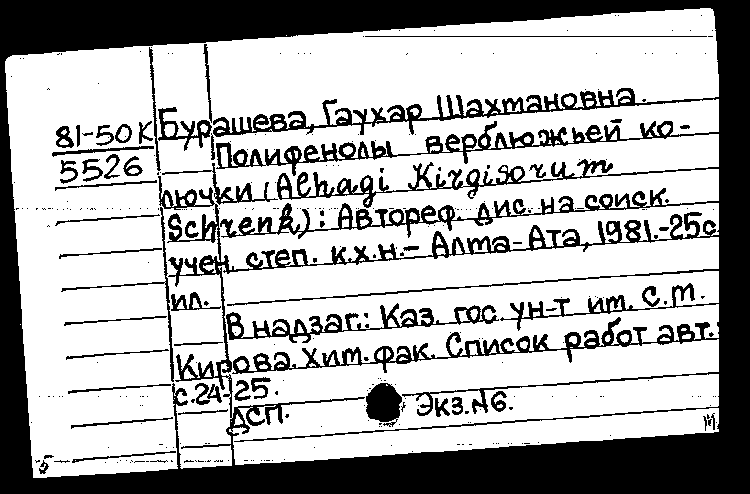 81-50К
5526
Бурашева, Гаухар Шахтмановна.
Полифенолы верблюжьей ко-
лючки (Alhagi Kirgisorum
Schrenk): Автореф. дис. на соиск.
учен. степ. к.х.н.- Алма-Ата, 1981.-25с
ил.
В надзаг.: Каз. гос. ун-т им. С.М.
Кирова. Хим. фак. Список работ авт.:
с.24-25.
ДСП. Экз.№6.